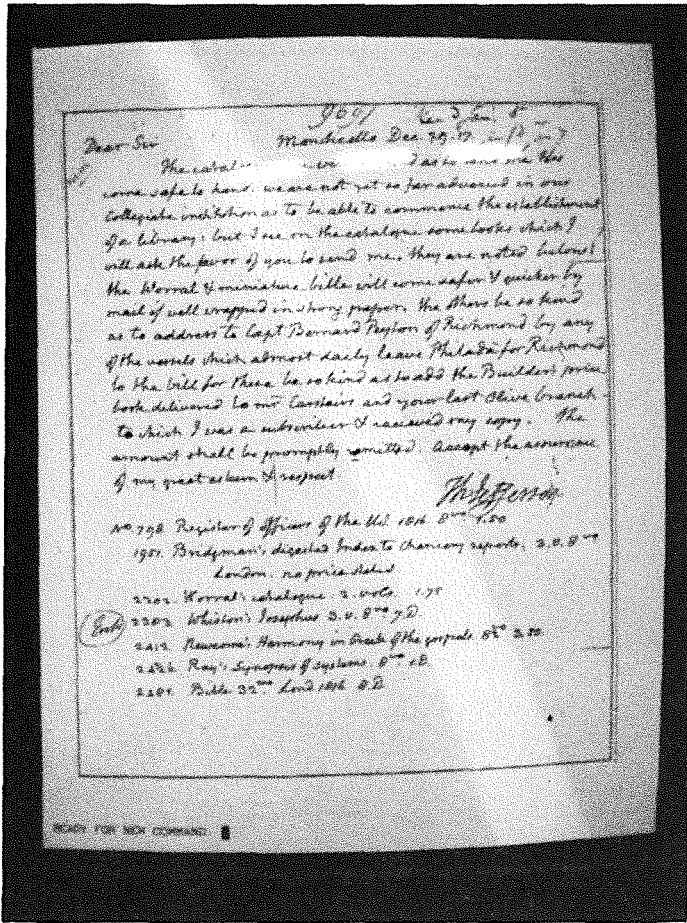 9691
Dear Sir Monticello Dec. 29. 17.
The as to send me, has
come safe to hand. we are not yet so far advanced in our
Collegiate institution as to be able to commence the establishment
of a library: but I see on the catalogue some books which I
will ask the favor of you to send me. they are noted below:
the Worral & miniature bible will come safer & quicker by
mail if well wrapped in strong paper. the others be so kind
as to address to Capt Bernard Peyton of Richmond by any
of the vessels which almost daily leave Philada for Richmond
to the bill for these be so kind as to add the Builder's price
book delivered to mr Carstairs and your last Olive branch
to which I was a subscriber & recieved my copy. the
amount shall be promptly remitted. Accept the assurance
of my great esteem & respect.
Th Jefferson
No. 798 Register of officers of the U.S. 1816 8vo 1.50
1951. Bridgman's digested Index to Chancery reports. 3.v. 8vo
London. no price stated
2202. Worral's catalogue. 2. vols. 1.75
2203 Whiston's Josephus 3.v. 8vo 7.D
2412 Newcome's Harmony in Greek of the gospels. 8vo 3.50
Ray's Synopsis of systems. 8vo
Bible 32mo Lond 1816 8.D
READY FOR NEW COMMAND